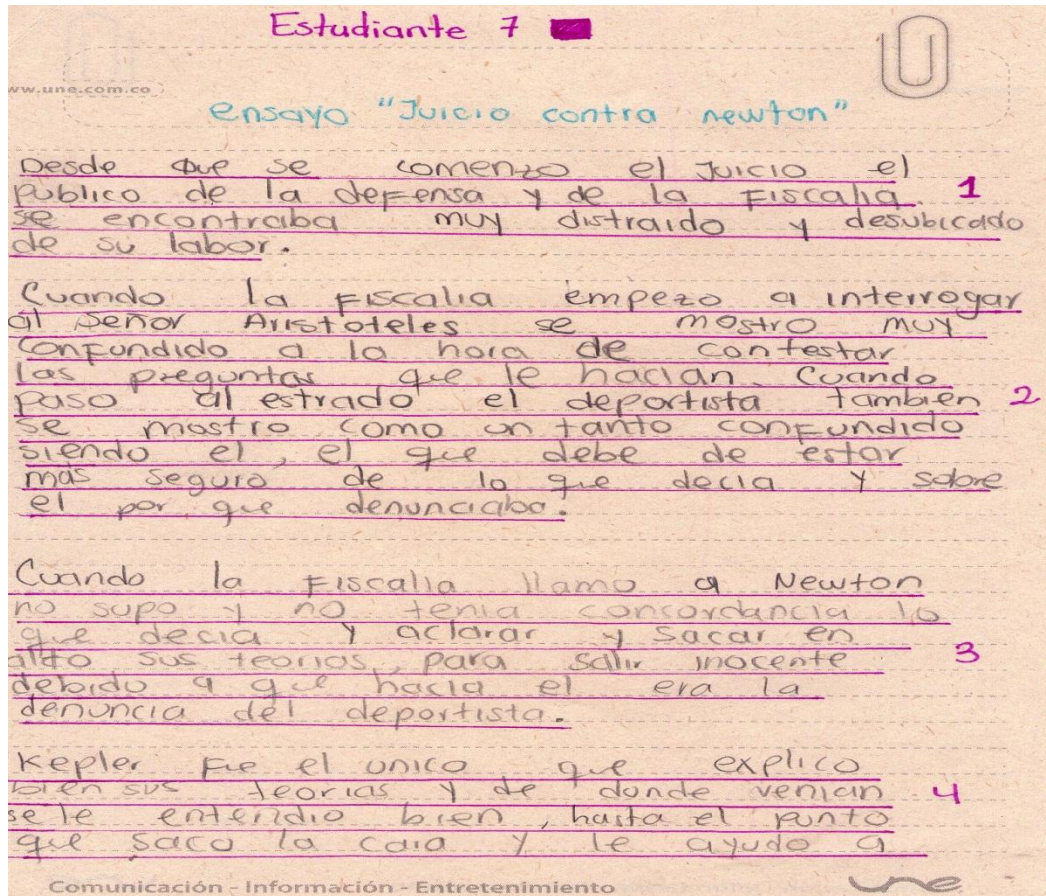 Estudiante 7
ww.une.com.co
ensayo "Juicio contra newton"
Desde que se comenzo el Juicio el
publico de la defensa y de la Fiscalia 1
se encontraba muy distraido y desubicado
de su labor.
Cuando la Fiscalia empezo a interrogar
al Señor Aristoteles se mostro muy
confundido a la hora de contestar
las preguntas que le hacian. Cuando
paso al estrado el deportista también 2
se mostro como un tanto confundido
siendo el, el que debe de estar
más seguro de lo que decia y sobre
el por que denunciaba.
Cuando la Fiscalia llamo a Newton
no supo y no tenia concordancia lo
que decia y aclarar y sacar en
alto sus teorias, para salir inocente 3
debido a que hacia el era la
denuncia del deportista.
Kepler Fue el unico que explico
bien sus teorias y de donde venian 4
se le entendio bien, hasta el punto
que saco la cara y le ayudo a
Comunicación - Información - Entretenimiento une